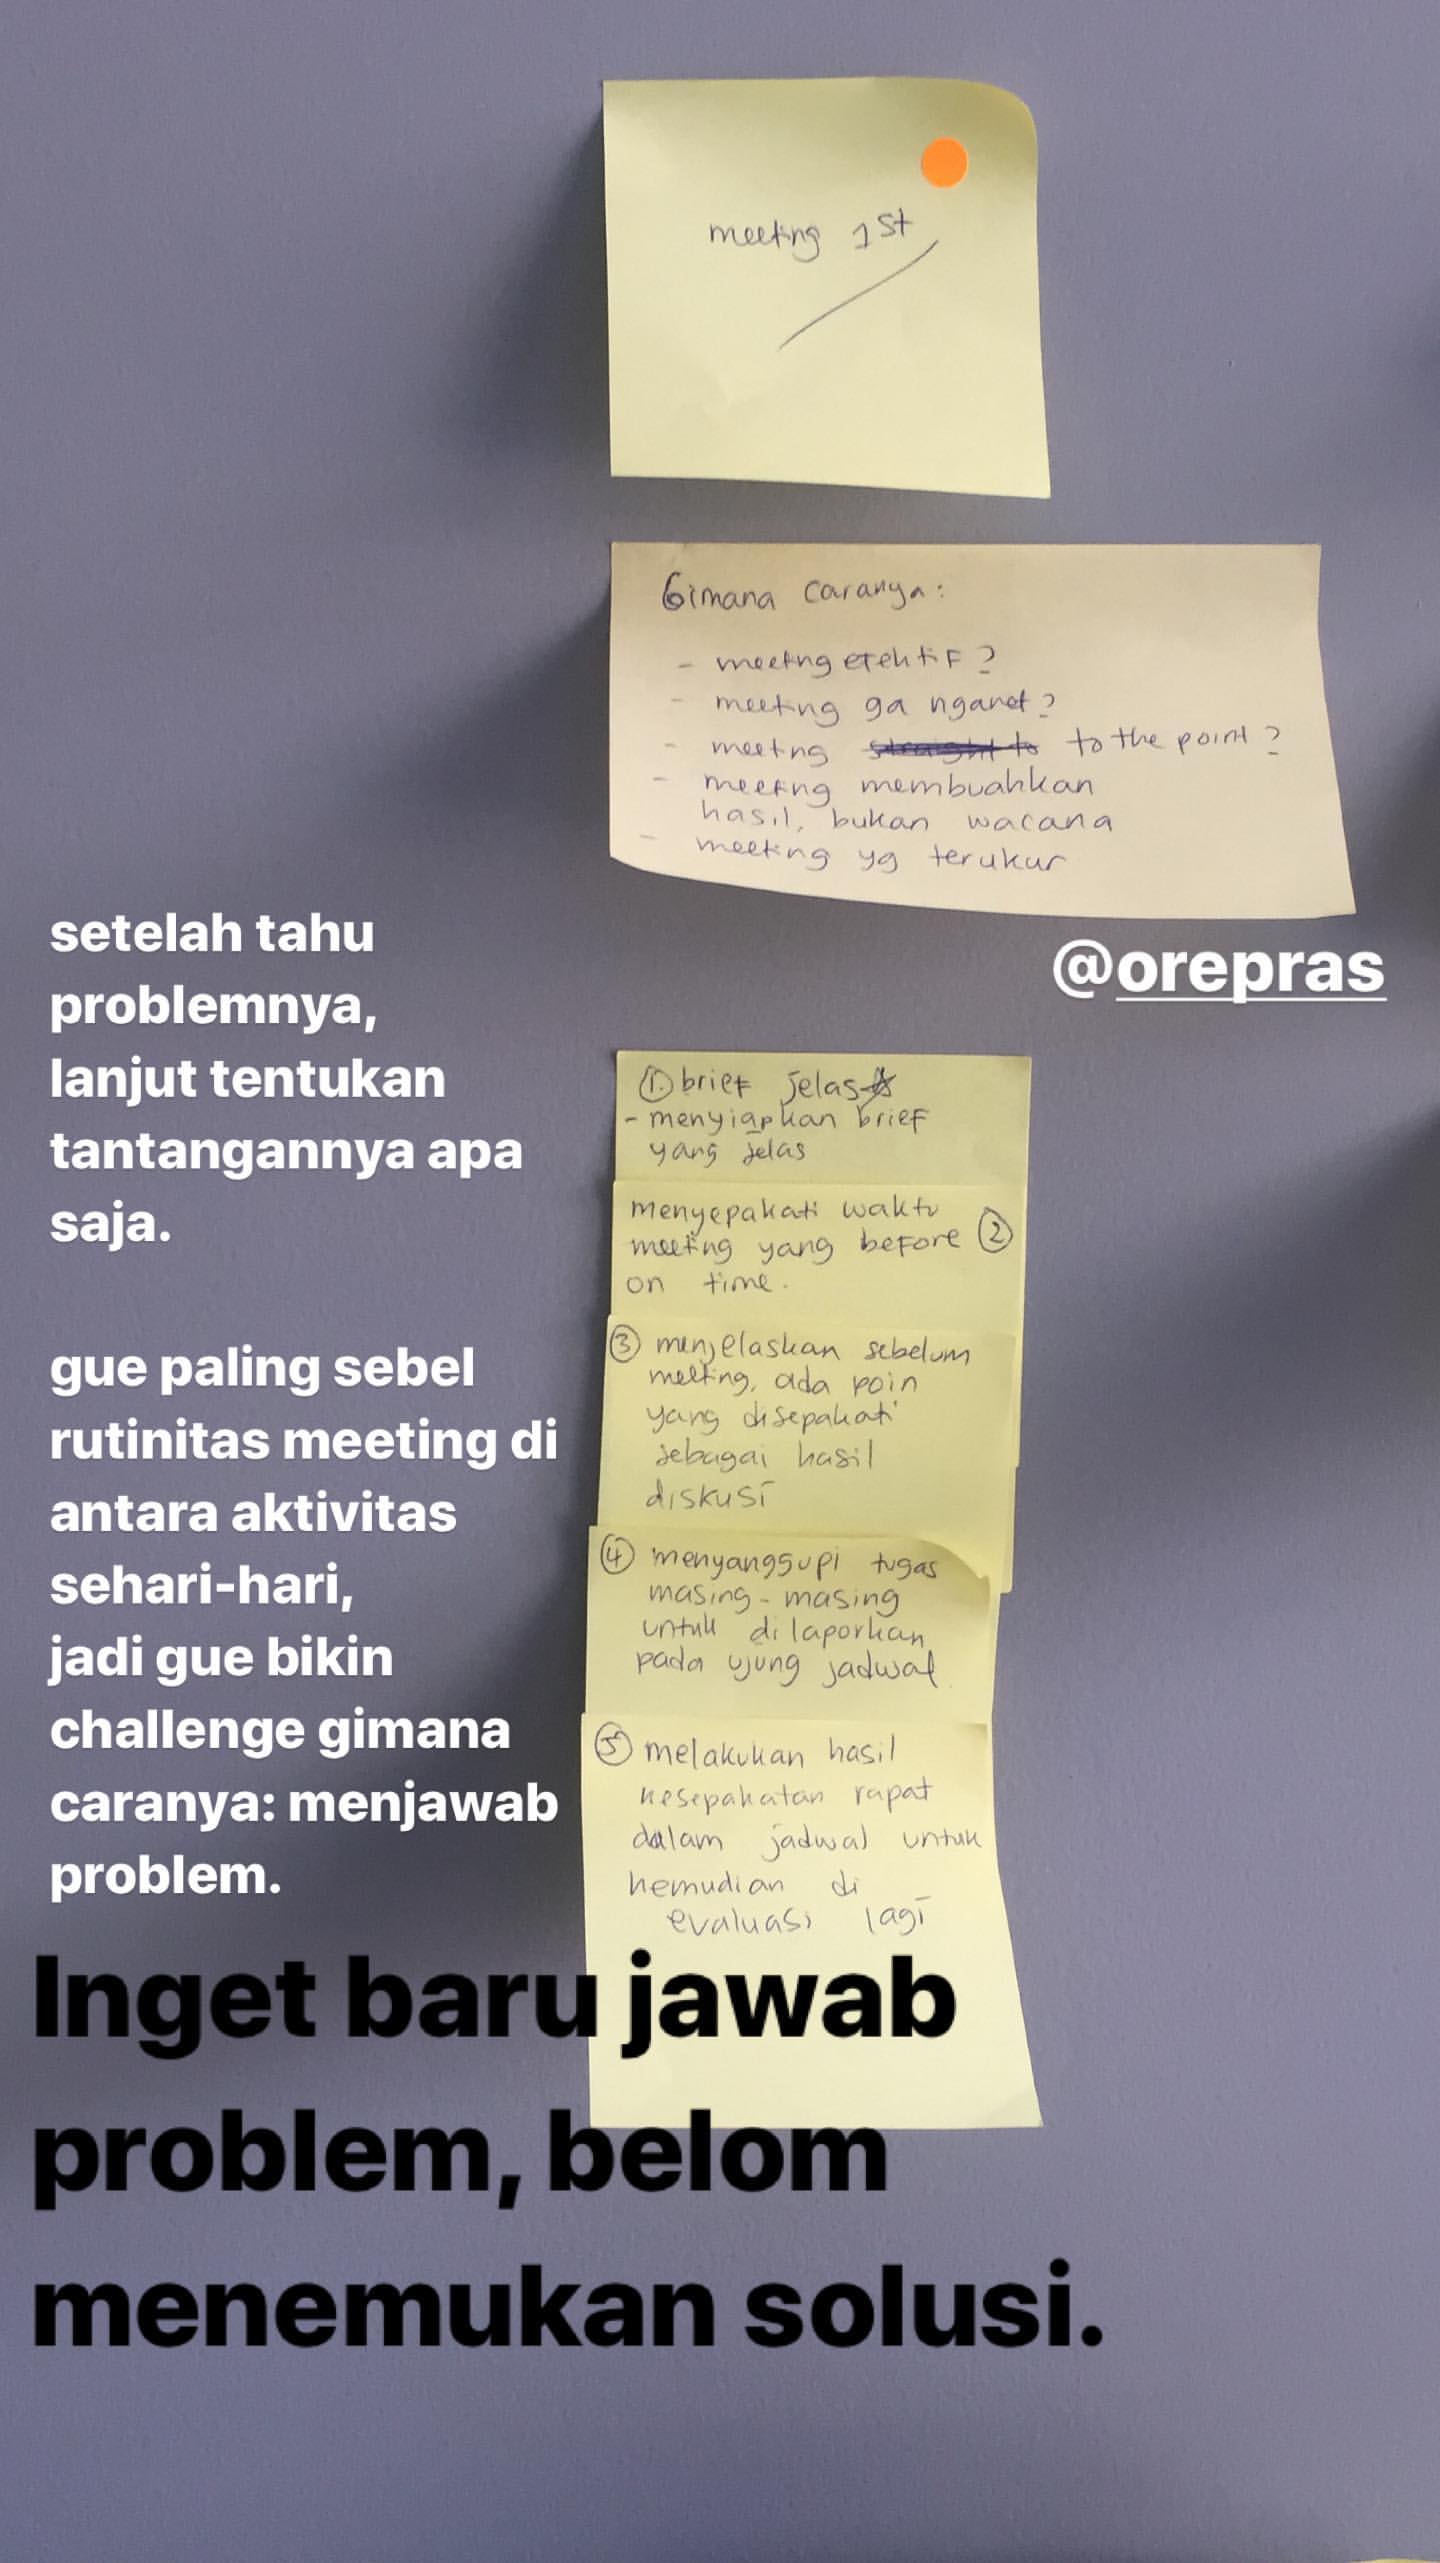 meeting 1st
Gimana caranya:
- meeting efektif?
- meeting ga nganet?
- meeting straight to to the point?
- meeting membuahkan
hasil, bukan wacana
- meeting yg terukur
@orepras
setelah tahu
problemnya,
lanjut tentukan
tantangannya apa
saja.
gue paling sebel
rutinitas meeting di
antara aktivitas
sehari-hari,
jadi gue bikin
challenge gimana
caranya: menjawab
problem.
1. brief jelas
- menyiapkan brief
yang jelas
menyepakati waktu
meeting yang before 2
on time.
3 menjelaskan sebelum
meeting, ada poin
yang disepakati
sebagai hasil
diskusi
4 menyanggupi tugas
masing-masing
untuk dilaporkan
pada ujung jadwal
5 melakukan hasil
kesepakatan rapat
dalam jadwal untuk
kemudian di
evaluasi lagi
Inget baru jawab
problem, belom
menemukan solusi.